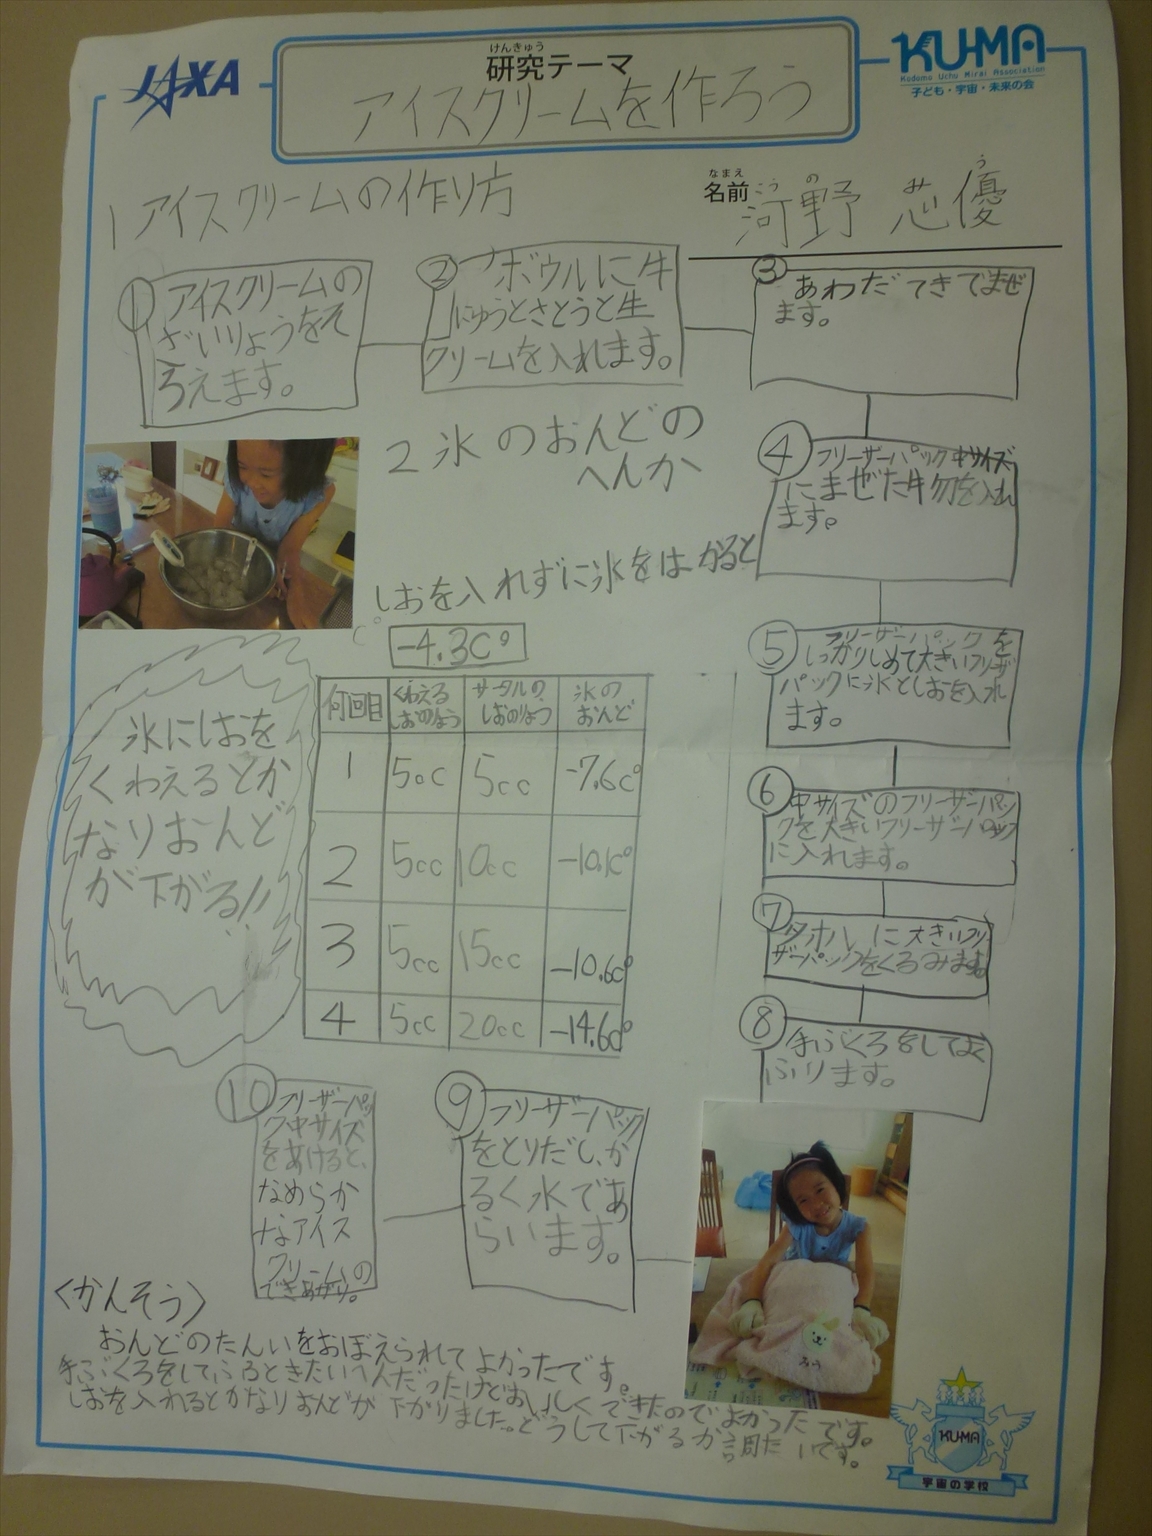 JAXA
けんきゅう
研究テーマ
アイスクリームを作ろう
KU-MA
Kodomo Uchu Mirai Association
子ども・宇宙・未来の会
なまえ
名前
こう の み う
河野 芯優
1 アイスクリームの作り方
① アイスクリームの
ざいりょうをそ
ろえます。
② ボウルに牛
にゅうとさとうと生
クリームを入れます。
③ あわだてきでまぜ
ます。
④ フリーザーパック中サイズ
にまぜた牛勿を入れ
ます。
⑤ フリーザーパックを
しっかりしめて大きいフリーザー
パックに氷としおを入れ
ます。
⑥ 中サイズのフリーザーパッ
クを大きいフリーザーパック
に入れます。
⑦ タオルに大きいフリー
ザーパックをくるみます。
⑧ 手ぶくろをしてよく
ふります。
⑨ フリーザーパック
をとりだし、か
るく水であ
らいます。
⑩ フリーザーパッ
ク中サイズ
をあけると、
なめらか
なアイス
クリームの
できあがり。
2 氷のおんどの
へんか
しおを入れずに氷をはかると
-4.3C°
何回目 くわえるしおのりょう サータルのしおのりょう 氷のおんど
1 5cc 5cc -7.6C°
2 5cc 10cc -10.1C°
3 5cc 15cc -10.6C°
4 5cc 20cc -14.6C°
氷にしおを
くわえるとか
なりおんど
が下がる!!
ろう
<かんそう>
おんどのたんいをおぼえられてよかったです。
手ぶくろをしてふるときたいへんだったけどおいしくできたのでよかったです。
しおを入れるとかなりおんどが下がりました。どうして下がるか調たいです。
KUMA
宇宙の学校